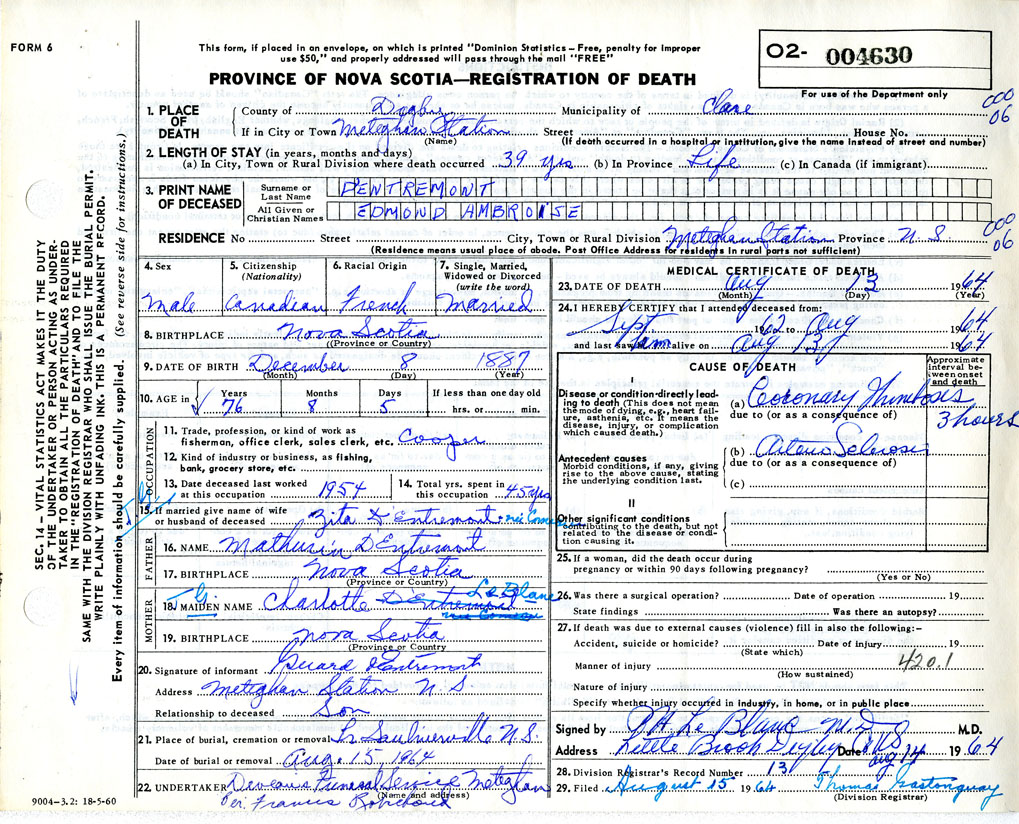 FORM 6
This form, if placed in an envelope, on which is printed "Dominion Statistics – Free, penalty for improper
use $50," and properly addressed will pass through the mail "FREE"
PROVINCE OF NOVA SCOTIA—REGISTRATION OF DEATH
O2- 004630
For use of the Department only
000
06
1. PLACE OF DEATH
County of Digby Municipality of Clare
If in City or Town Meteghan Station Street House No.
(Name) (If death occurred in a hospital or institution, give the name instead of street and number)
2. LENGTH OF STAY (in years, months and days)
(a) In City, Town or Rural Division where death occurred 39 yrs (b) In Province Life (c) In Canada (if immigrant)
3. PRINT NAME OF DECEASED
Surname or Last Name D'ENTREMONT
All Given or Christian Names EDMOND AMBROISE
000
06
RESIDENCE No Street City, Town or Rural Division Meteghan Station Province N.S.
(Residence means usual place of abode. Post Office Address for residents in rural parts not sufficient)
4. Sex Male
5. Citizenship (Nationality) Canadian
6. Racial Origin French
7. Single, Married, Widowed or Divorced (write the word) Married
8. BIRTHPLACE Nova Scotia
(Province or Country)
9. DATE OF BIRTH December 8 1887
(Month) (Day) (Year)
10. AGE in Years 76 Months 8 Days 5 If less than one day old hrs. or min.
OCCUPATION
11. Trade, profession, or kind of work as
fisherman, office clerk, sales clerk, etc. Cooper
12. Kind of industry or business, as fishing,
bank, grocery store, etc.
13. Date deceased last worked at this occupation 1954
14. Total yrs. spent in this occupation 45 yrs
15. If married give name of wife
or husband of deceased Zita D'Entremont née
FATHER
16. NAME Mathurin D'Entremont
17. BIRTHPLACE Nova Scotia
(Province or Country)
MOTHER
18. MAIDEN NAME Charlotte D'Entremont Le Blanc
née Comeau
19. BIRTHPLACE Nova Scotia
(Province or Country
20. Signature of informant d'Entremont
Address Meteghan Station N S
Relationship to deceased Son
21. Place of burial, cremation or removal Saulnierville N.S.
Date of burial or removal Aug. 15, 1964
22. UNDERTAKER Deveau's Funeral Service Meteghan
(Name and address)
Per: Francis Robichaud
9004–3.2: 18-5-60
MEDICAL CERTIFICATE OF DEATH
23. DATE OF DEATH Aug 13 1964
(Month) (Day) (Year)
24. I HEREBY CERTIFY that I attended deceased from:
Sept 1962 to Aug 1964
and last saw him alive on Aug 13 1964
CAUSE OF DEATH
Approximate interval between onset and death
I
Disease or condition directly leading to death (This does not mean the mode of dying, e.g., heart failure, asthenia, etc. It means the disease, injury, or complication which caused death.)
(a) Coronary Thrombosis 3 hours
due to (or as a consequence of)
Antecedent causes
Morbid conditions, if any, giving rise to the above cause, stating the underlying condition last.
(b) Arterio Sclerosis
due to (or as a consequence of)
(c)
II
Other significant conditions
contributing to the death, but not related to the disease or condition causing it.
25. If a woman, did the death occur during
pregnancy or within 90 days following pregnancy?
(Yes or No)
26. Was there a surgical operation? Date of operation 19
State findings Was there an autopsy?
27. If death was due to external causes (violence) fill in also the following:–
Accident, suicide or homicide? Date of injury 19
(State which)
420.1
Manner of injury
(How sustained)
Nature of injury
Specify whether injury occurred in industry, in home, or in public place
Signed by Le Blanc M.D. M.D.
Address Little Brook Digby N.S. Date Aug 14 1964
28. Division Registrar's Record Number 13
29. Filed August 15 1964 Thomas Gastonguay
(Division Registrar)
SEC. 14 – VITAL STATISTICS ACT MAKES IT THE DUTY
OF THE UNDERTAKER OR PERSON ACTING AS UNDER-
TAKER TO OBTAIN ALL THE PARTICULARS REQUIRED
IN THE "REGISTRATION OF DEATH" AND TO FILE THE
SAME WITH THE DIVISION REGISTRAR WHO SHALL ISSUE THE BURIAL PERMIT.
WRITE PLAINLY WITH UNFADING INK. THIS IS A PERMANENT RECORD.
Every item of information should be carefully supplied. (See reverse side for instructions.)